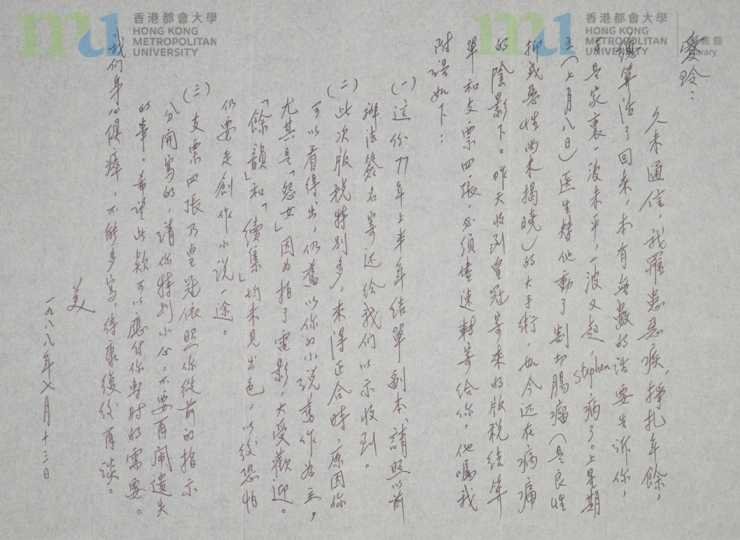 香港都會大學
HONG KONG
METROPOLITAN
UNIVERSITY
香港都會大學
HONG KONG
METROPOLITAN
UNIVERSITY
愛玲：
久未通信，我罹患惡疾，掙扎年餘，
總算活了回來，本有無數的話要告訴你，
可是家裏一波未平，一波又起，Stephen病了。上星期
五（七月八日）醫生替他動了割切腸瘤（是良性
抑或惡性尚未揭曉）的大手術，如今還在病痛
的陰影下。昨天收到皇冠寄來的版稅結單
單和支票四張，必須儘速轉寄給你，他囑我
附語如下：
(一)這份77年上半年結單副本，請照以前
辦法簽名寄還給我們以示收到。
(二)此次版稅特別多，來得正合時，原因你
可以看得出，仍舊以你的小說舊作為主，
尤其是「怨女」因為拍了電影，大受歡迎。
「餘韻」和「續集」均未見出色，以後恐怕
仍要走創作小說一途。
(三)支票四張乃皇冠依照你從前的指示
分開寫的，請你特別小心，不要再鬧遺失
的事。希望此款可以應付你暫時的需要。
我們身心俱瘁，不能多寫，待康復後再談。
美
一九八八年七月十三日